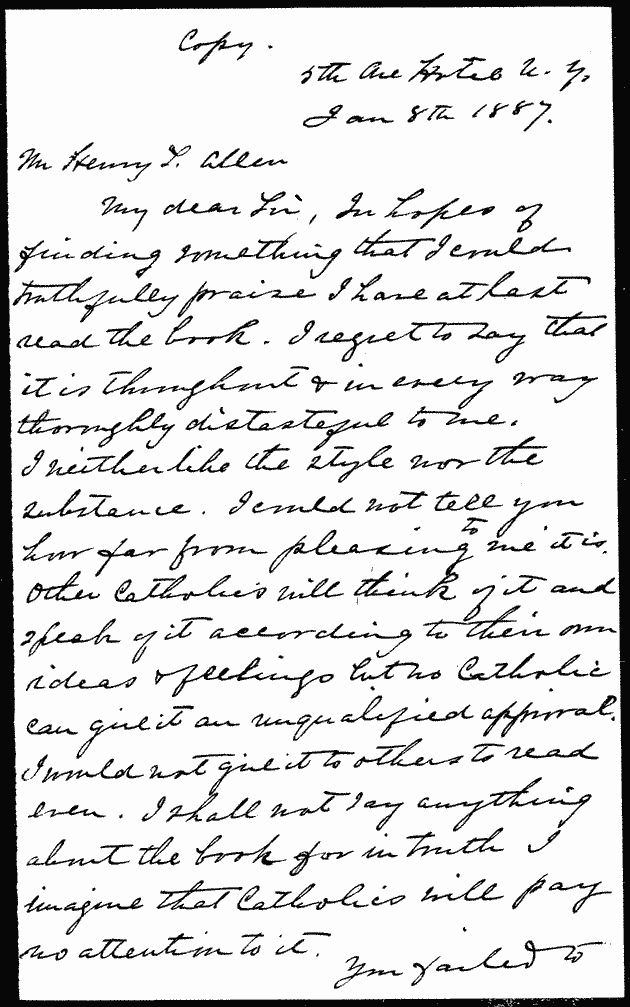 Copy.
5th Ave Hotel N. Y.
Jan 8th 1887.
Mr Henry T. Allen
My dear Sir, In hopes of
finding something that I could
truthfully praise I have at last
read the book. I regret to say that
it is throughout & in every way
thoroughly distasteful to me.
I neither like the style nor the
substance. I could not tell you
how far from pleasing to me it is.
Other Catholics will think of it and
speak of it according to their own
ideas & feelings but no Catholic
can give it an unqualified approval.
I would not give it to others to read
even. I shall not say anything
about the book for in truth I
imagine that Catholics will pay
no attention to it.
You failed to